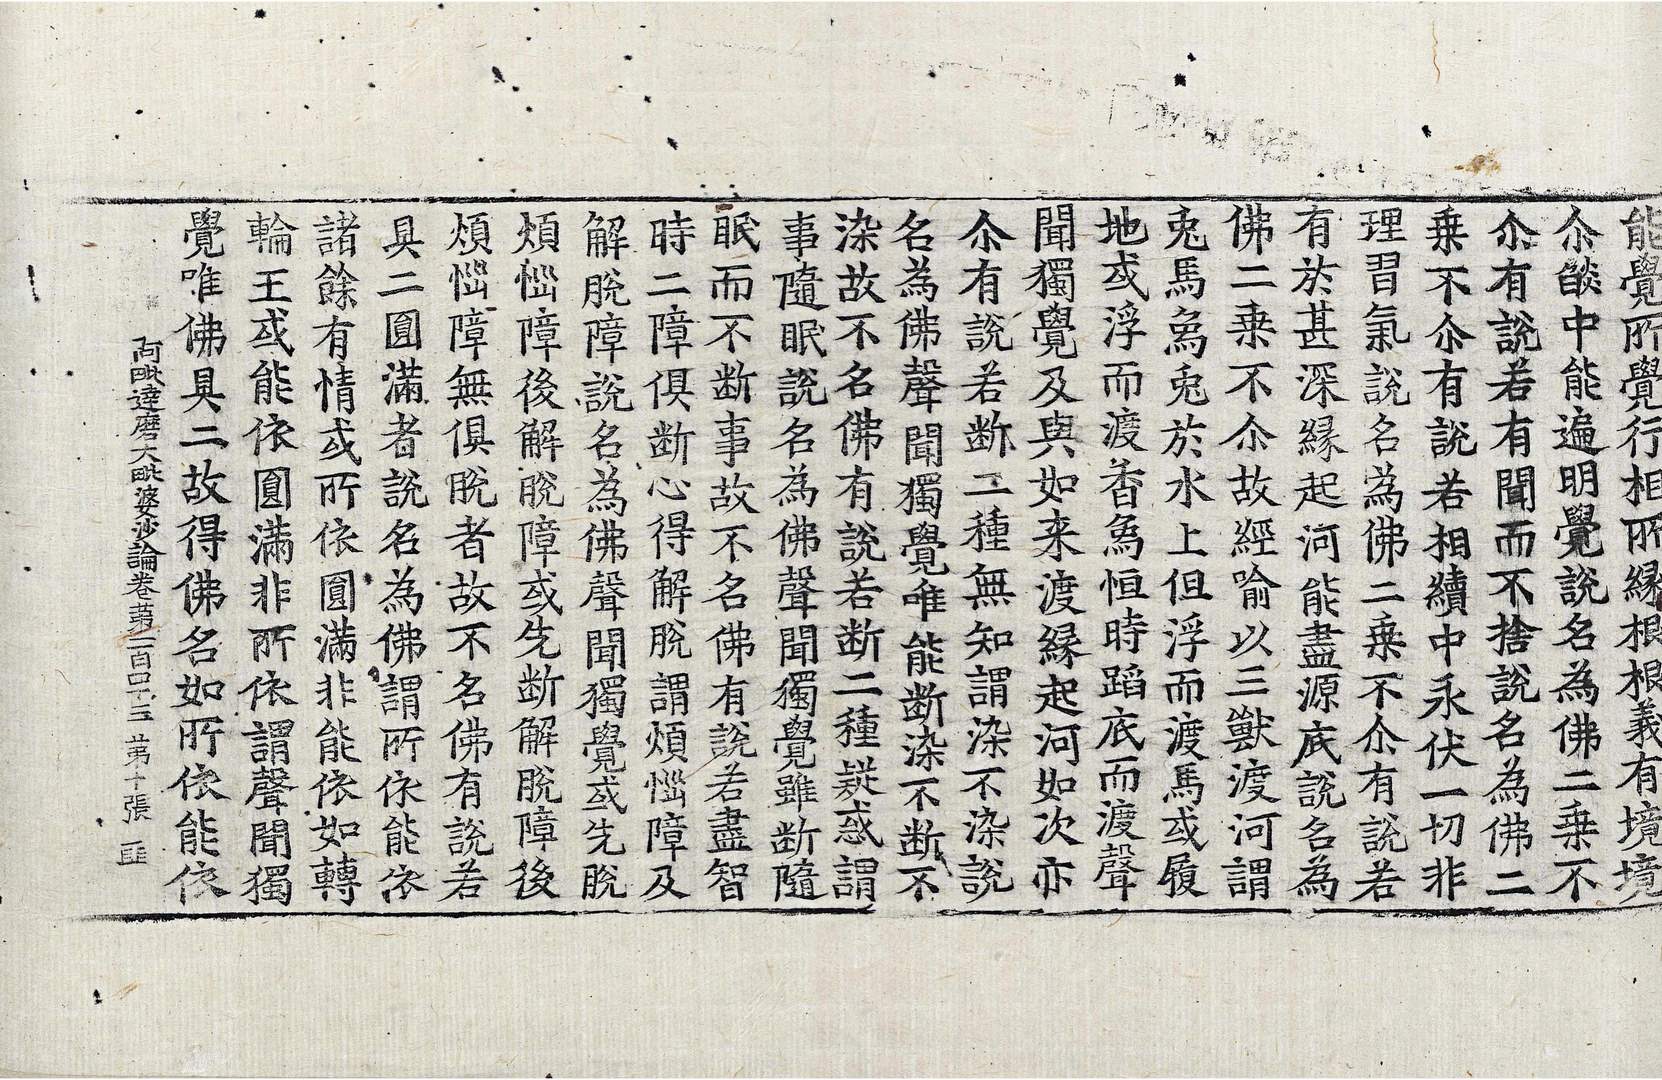 能覺所覺行相所緣根根義有境境
尒㷔中能遍明覺說名為佛二乗不
尒有說若有聞而不捨說名為佛二
乗不尒有說若相續中永伏一切非
理習氣說名為佛二乗不尒有說若
有於甚深緣起河能盡源底說名為
佛二乗不尒故經喻以三獸渡河謂
兎馬象兎於水上但浮而渡馬或履
地或浮而渡香象恒時蹈底而渡聲
聞獨覺及與如来渡緣起河如次亦
尒有說若斷二種無知謂染不染說
名為佛聲聞獨覺唯能斷染不斷不
染故不名佛有說若斷二種疑惑謂
事隨眠說名為佛聲聞獨覺雖斷隨
眠而不斷事故不名佛有說若盡智
時二障俱斷心得解脫謂煩惱障及
解脫障說名為佛聲聞獨覺或先脫
煩惱障後解脫障或先斷解脫障後
煩惱障無俱脫者故不名佛有說若
具二圓滿者說名為佛謂所依能依
諸餘有情或所依圓滿非能依如轉
輪王或能依圓滿非所依謂聲聞獨
覺唯佛具二故得佛名如所依能依
阿毗達磨大毗婆沙論卷第一百四十三 第十張 匪